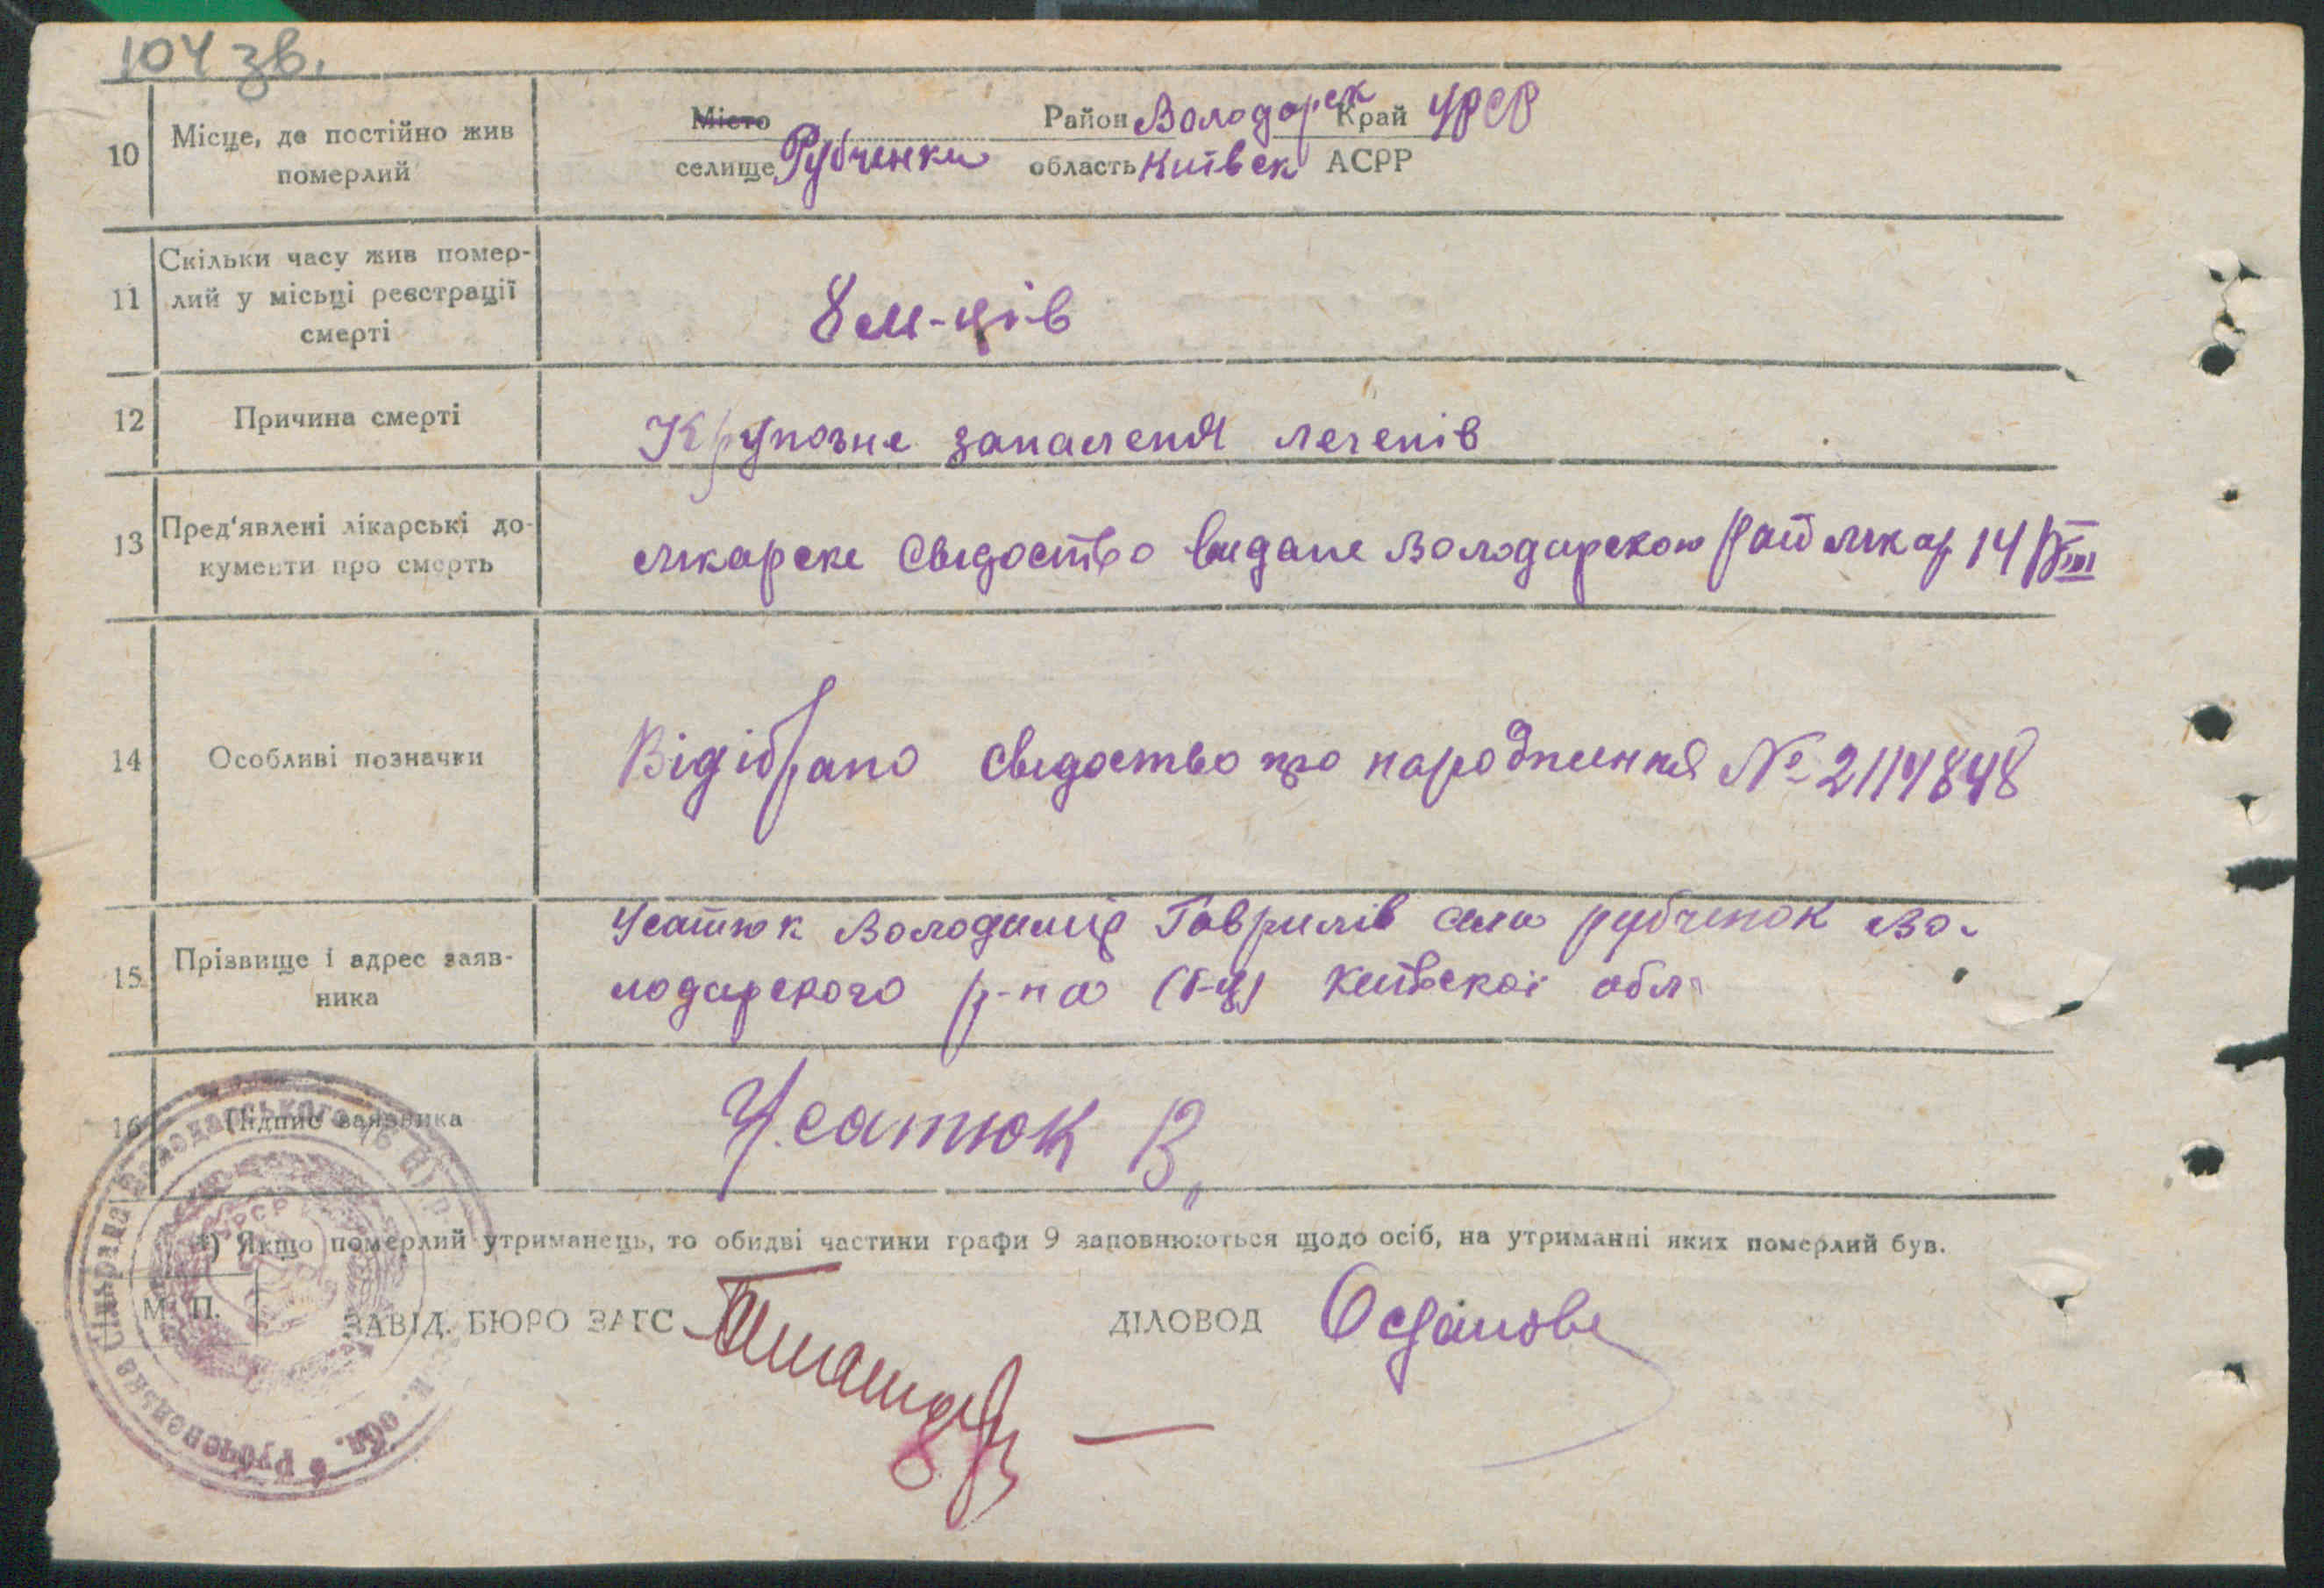 104 зв.
10 Місце, де постійно жив померлий
Место Район Володарск Край УРСР
селище Рубченки область Київск АСРР
11 Скільки часу жив помер-
лий у місьці реєстрації
смерті
8 м-ців
12 Причина смерті
Крупозне запаленя легенів
13 Пред'явлені лікарські до-
кументи про смерть
лікарске свідоство видане Володарскою рай лікар 14/VIII
14 Особливі позначки
Відібрано свідоство про народження № 2114848
15 Прізвище і адрес заяв-
ника
Усатюк Володимір Гаврилів села рубченок Во-
лодарского р-на (б-ц) Київскої обл
16 Підпис заявника
Усатюк В.
*) Якщо померлий утриманець, то обидві частини графи 9 заповнюються щодо осіб, на утриманні яких померлий був.
М. П.
ЗАВІД. БЮРО ЗАГС
ДІЛОВОД
УРСР